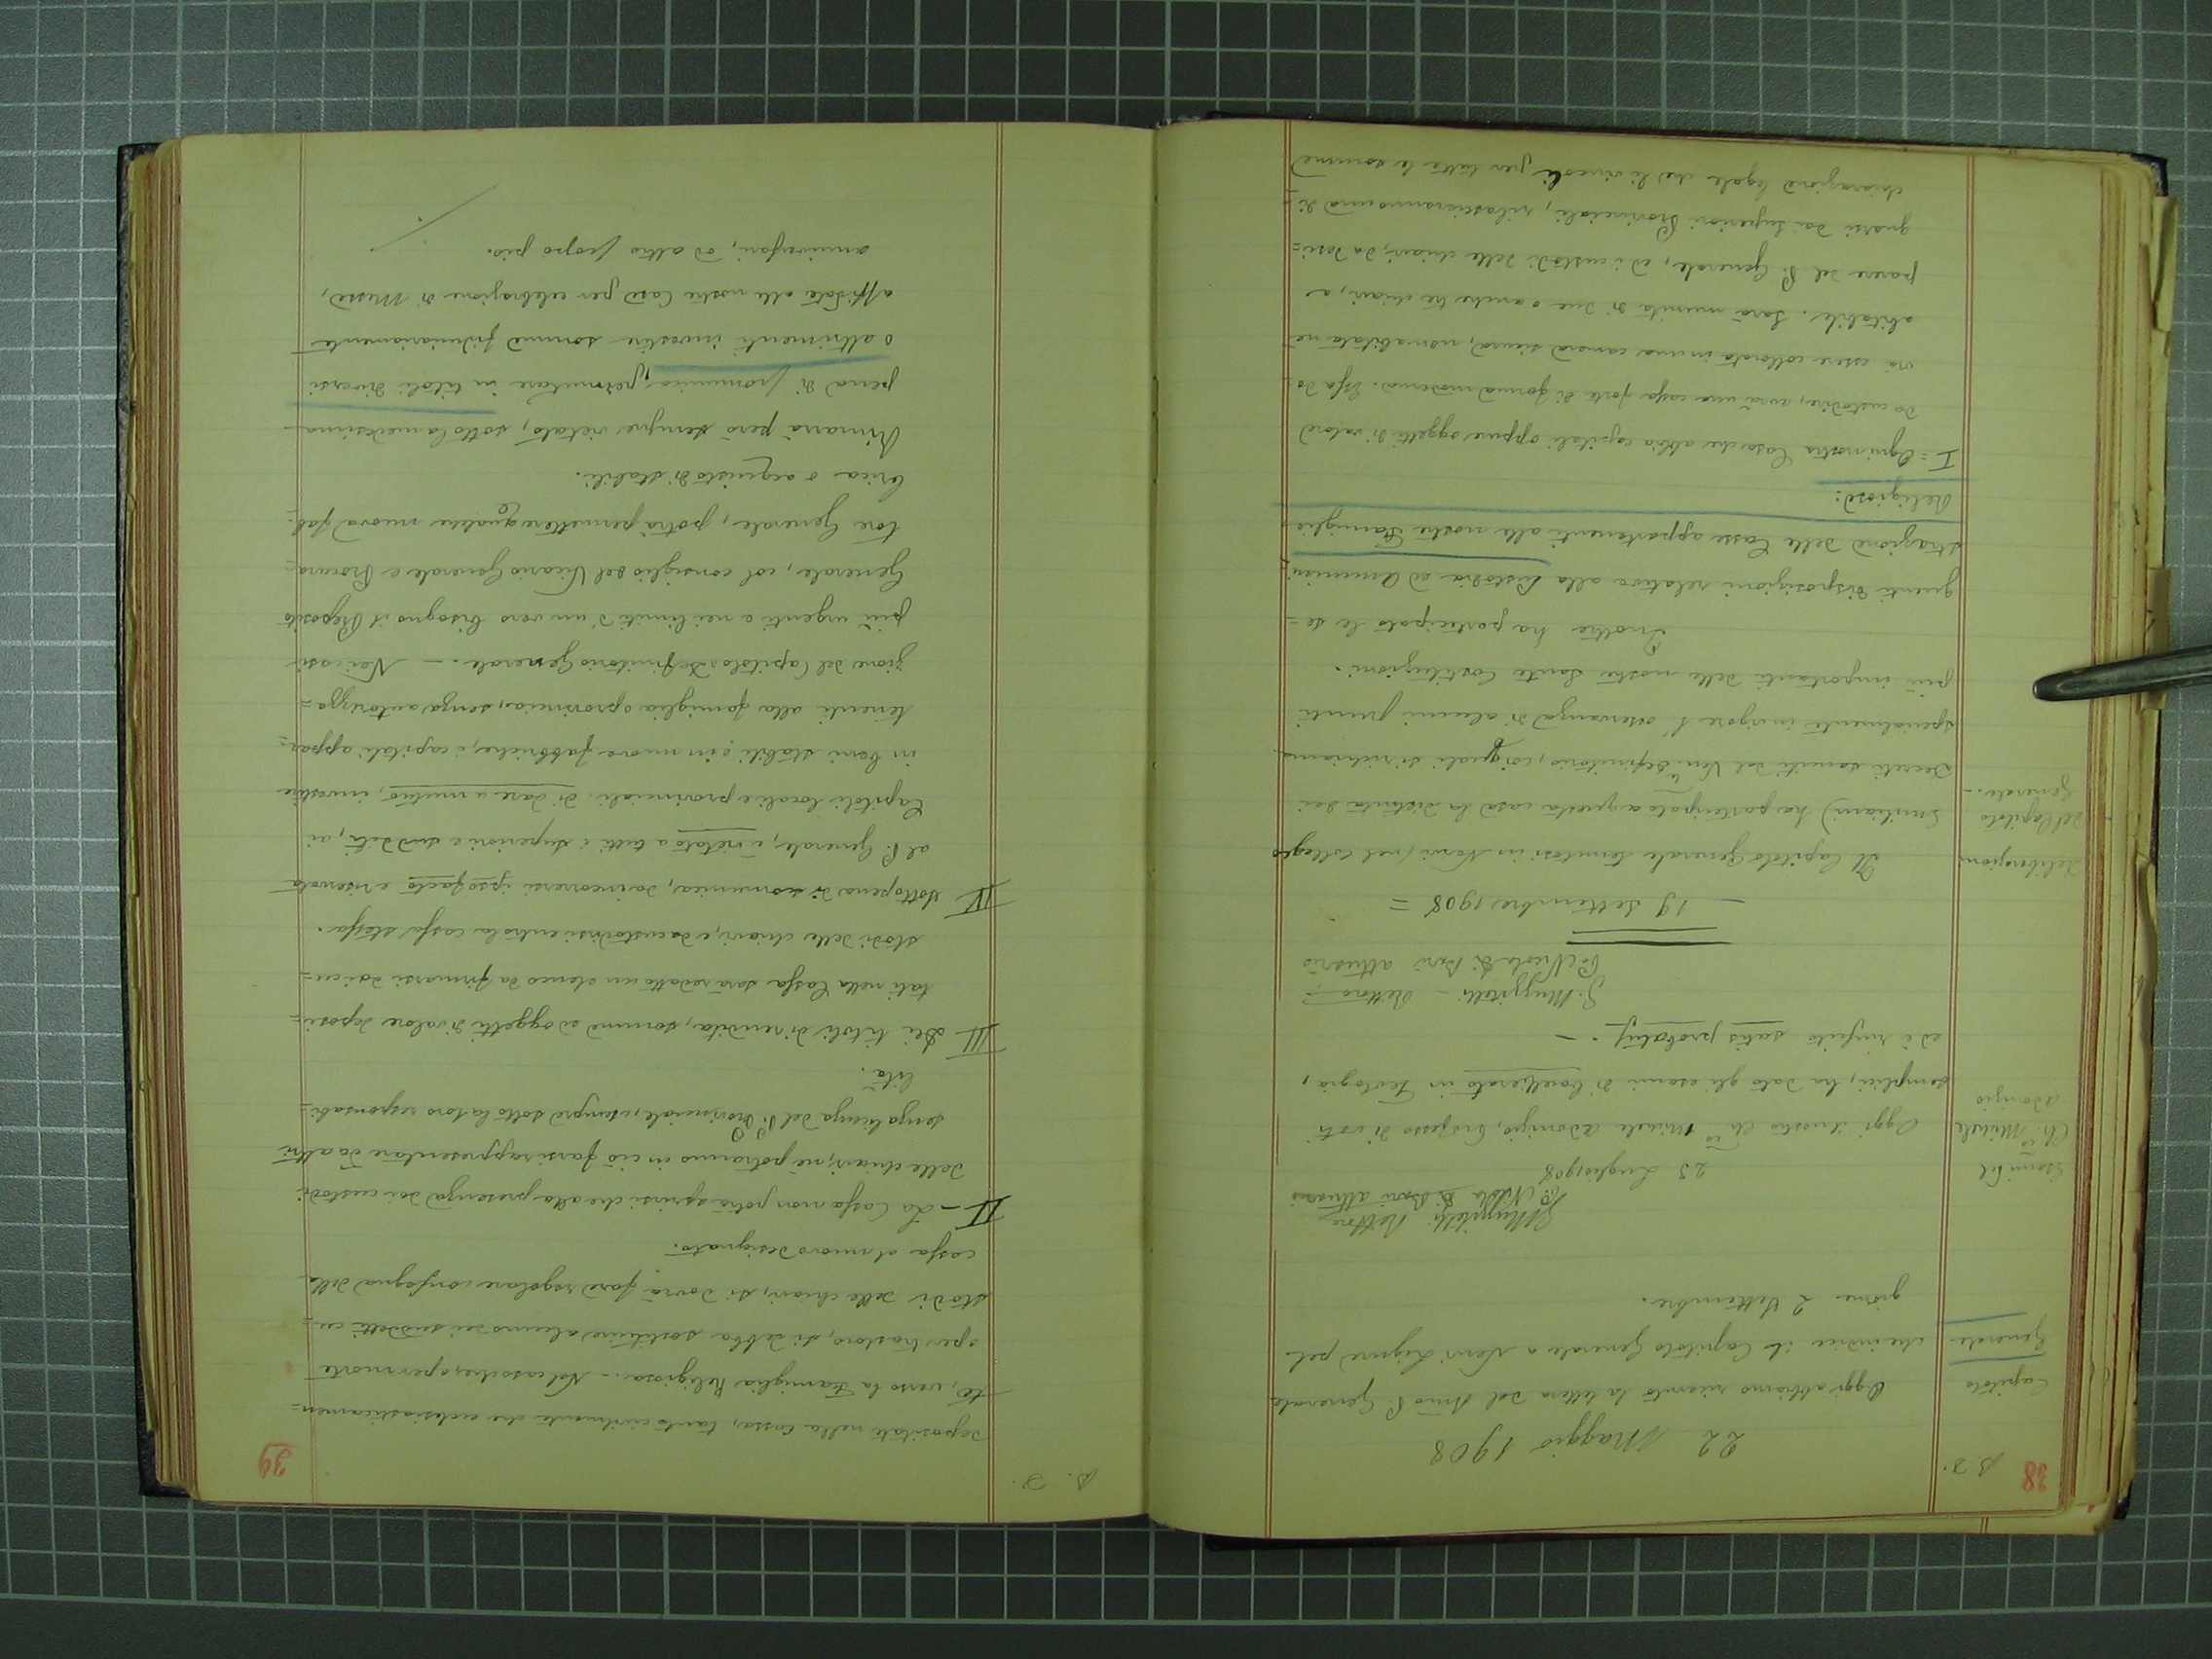 38
A. D.
22 Maggio 1908
Capitolo
Generale
Oggi abbiamo ricevuto la lettera del Rmo P. Generale
che indice il Capitolo Generale a Nervi Ligure pel
giorno 2 Settembre.
G. Muzzitelli Rettore
P. Nicola Di Bari attuario
23 Luglio 1908
Esami del
Ch.co Michele
Adonizio
Oggi il nostro Ch.co Michele Adonizio, Professo di voti
semplici, ha dato gli esami di baccellierato in Teologia,
ed è riuscito satis probatus. —
G. Muzzitelli - Rettore -
P. Nicola Di Bari attuario
— 19 Settembre 1908 =
Deliberazioni
del Capitolo
Generale. -
Il Capitolo Generale tenutosi in Nervi (nel Collegio
Emiliani) ha partecipato a questa casa la distinta dei
Decreti sanciti dal Ven. Definitorio, coi quali si richiama
specialmente in vigore l'osservanza di alcuni punti
più importanti delle nostre Sante Costituzioni.
Inoltre ha partecipato le se=
guenti disposizioni relative alla Custodia ed Ammini
strazione delle Casse appartenenti alle nostre Famiglie
Religiose:
I = Ogni nostra Casa che abbia capitali oppure oggetti di valore
da custodire, avrà una cassa forte di forma moderna. Essa do
vrà essere collocata in una camera sicura, non abitata nè
abitabile. Sarà munita di due o anche tre chiavi, a
parere del P. Generale, ed i custodi delle chiavi, da desi=
gnarsi dai Superiori Provinciali, rilascieranno una di
chiarazione legale che li vincoli per tutte le somme
A. D.
39
depositate nella cassa, tanto civilmente che ecclesiasticamen=
te, verso la Famiglia Religiosa. - Nel caso che, o per morte
o per trasloco, si debba sostituire alcuno dei suddetti cu=
stodi delle chiavi, si dovrà fare regolare consegna della
cassa al nuovo designato.
II - La Cassa non potrà aprirsi che alla presenza dei custodi
delle chiavi, nè potranno in ciò farsi rappresentare da altri
senza licenza del P. Provinciale, e sempre sotto la loro responsabi=
lità.
III Dei titoli di rendita, somme ed oggetti di valore deposi=
tati nella Cassa sarà redatto un elenco da firmarsi dai cu=
stodi delle chiavi, e da custodirsi entro la cassa stessa.
IV Sotto pena di scomunica, da incorrersi ipso facto e riservata
al P. Generale, è vietato a tutti i superiori e sudditi, ai
Capitoli locali e provinciali, di dare a mutuo, investire
in beni stabili o in nuove fabbriche, i capitali appar=
tenenti alla famiglia o provincia, senza autorizza=
zione del Capitolo o Definitorio Generale. - Nei casi
più urgenti e nei limiti d'un vero bisogno il Preposito
Generale, col consiglio del Vicario Generale e Procura=
tore Generale, potrà permettere qualche nuova fab=
brica o acquisto di stabili.
Rimarrà però sempre vietato, sotto la medesima
pena di scomunica, permutare in titoli diversi
o altrimenti investire somme fiduciariamente
affidate alle nostre Case per celebrazione di Messe,
anniversari, od altro scopo pio.